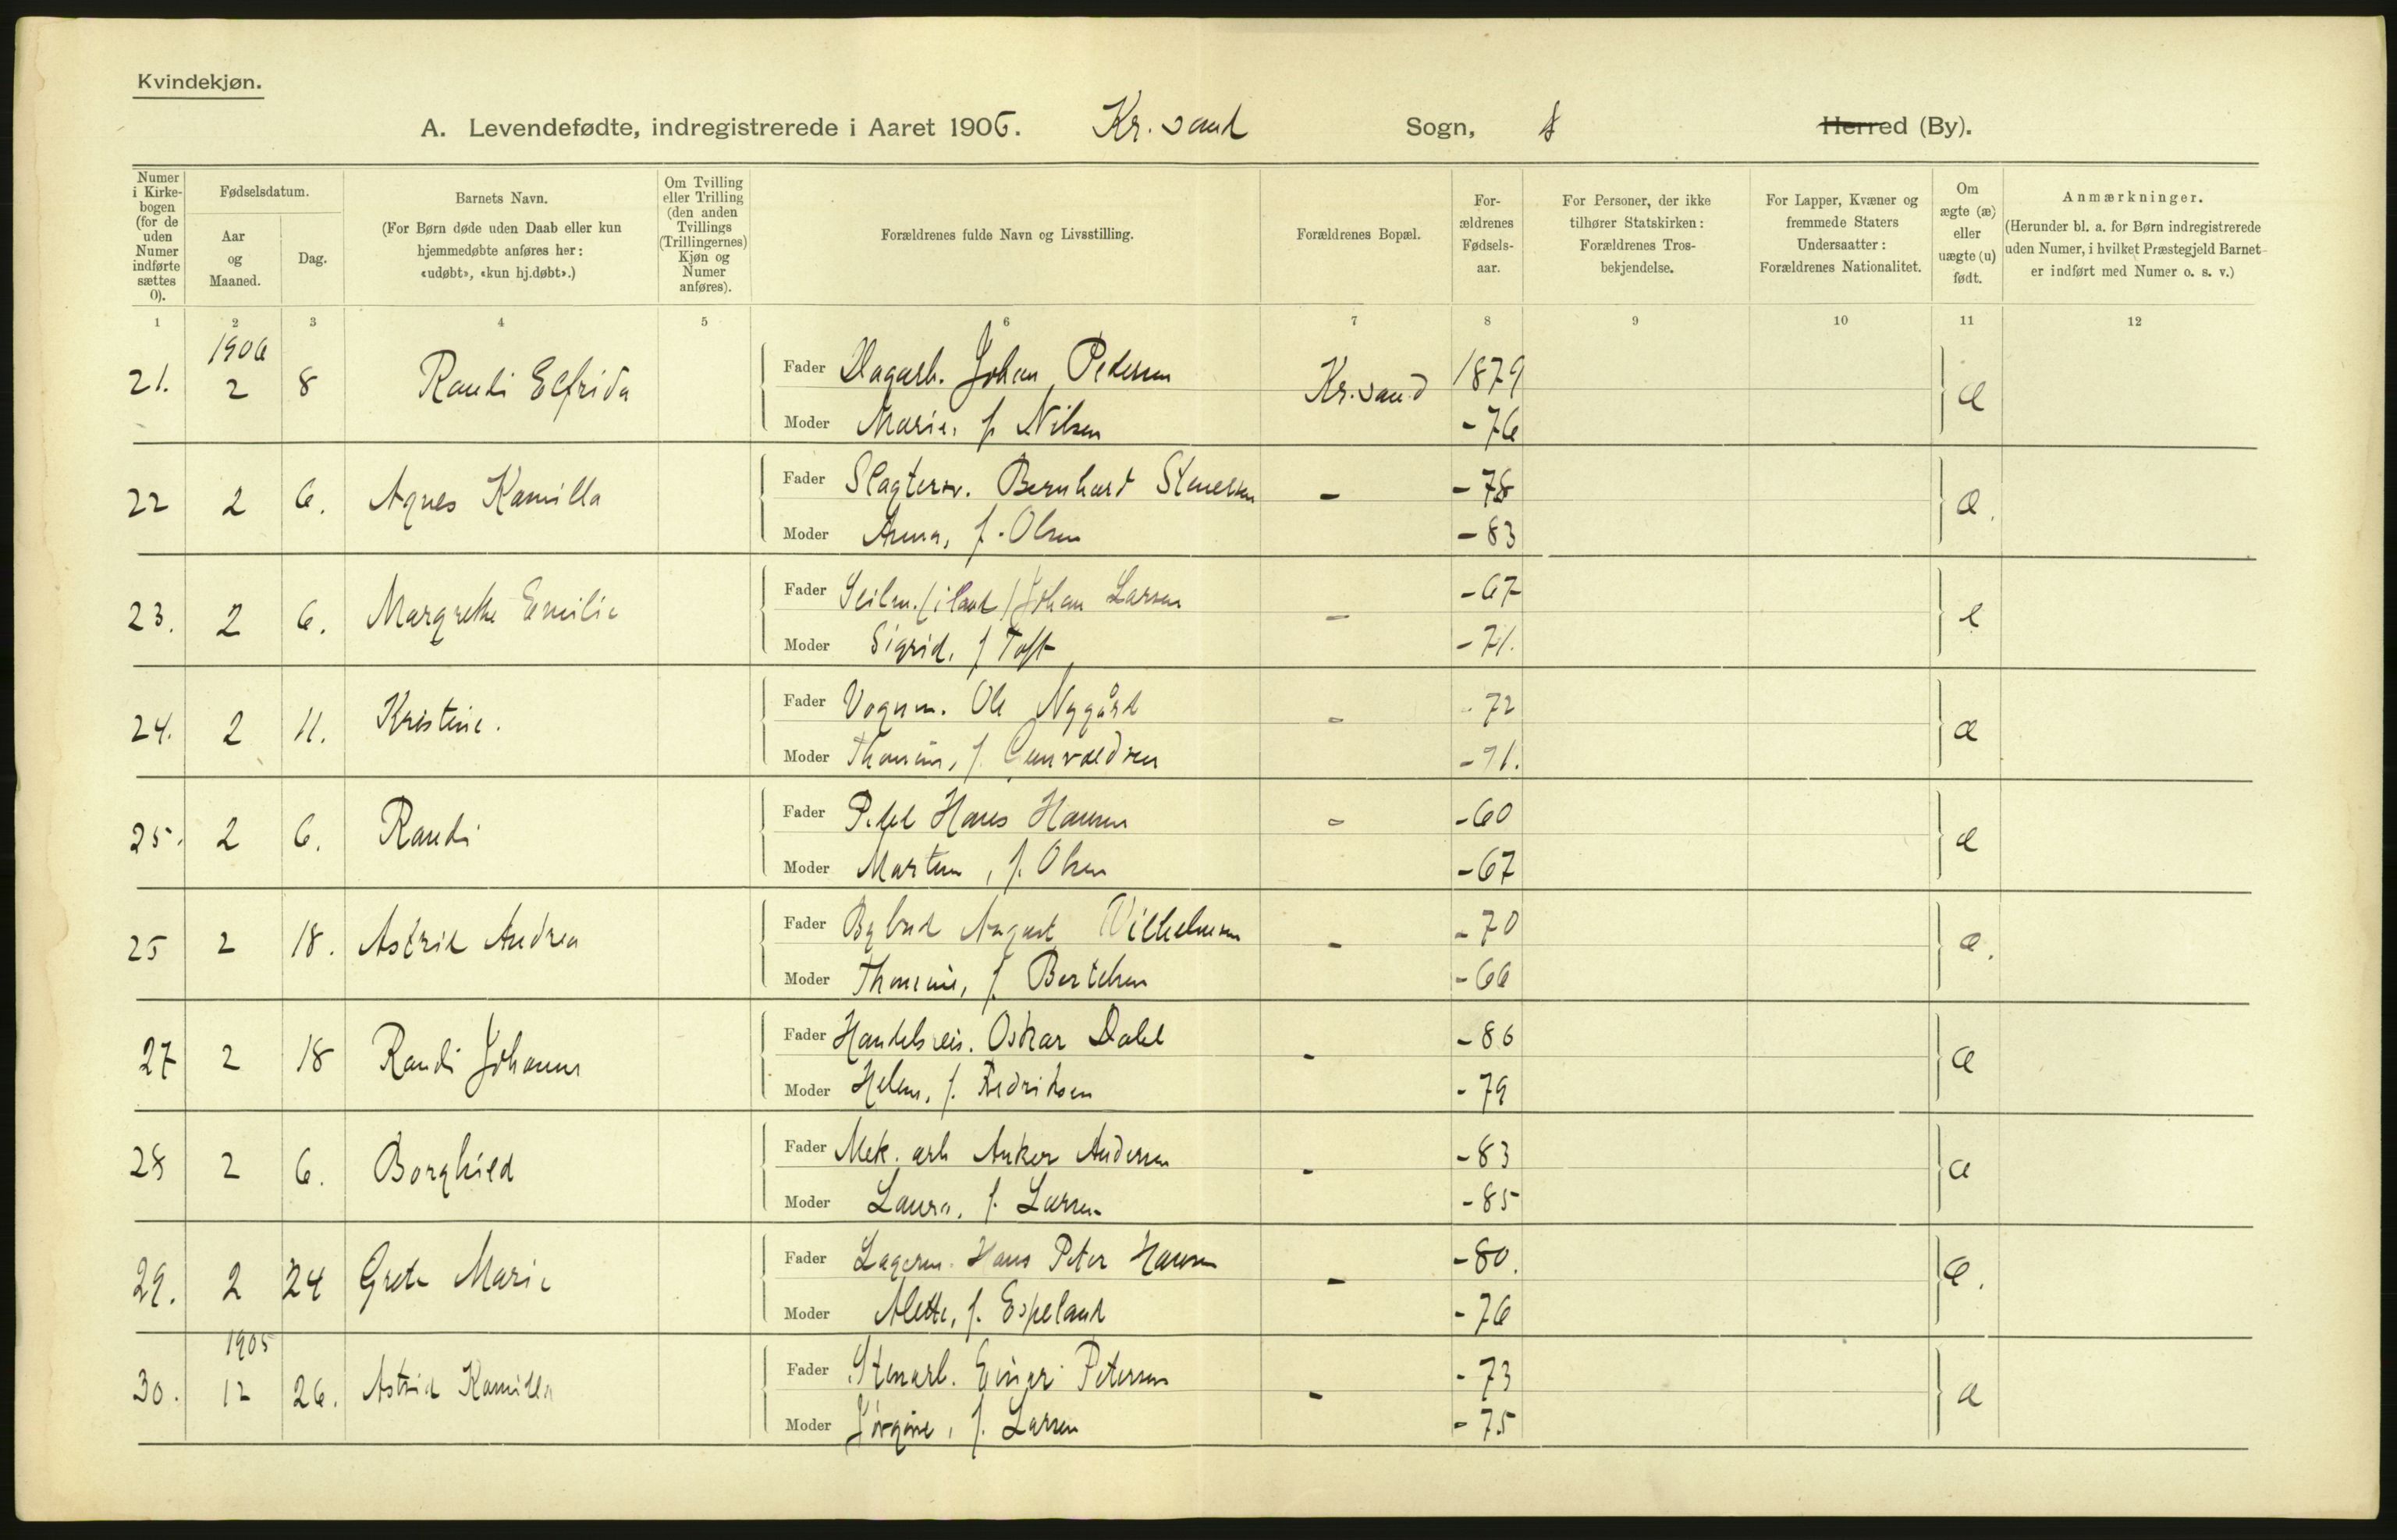 Kvindekjøn.
A. Levendefødte, indregistrerede i Aaret 1906. Kr.sand Sogn, Herred (By).
Numer i Kirkebogen (for de uden Numer indførte sættes 0).
Fødselsdatum.
Aar og Maaned.
Dag.
Barnets Navn.
(For Børn døde uden Daab eller kun hjemmedøbte anføres her: «udøbt», «kun hj.døbt».)
Om Tvilling eller Trilling (den anden Tvillings (Trillingernes) Kjøn og Numer anføres).
Forældrenes fulde Navn og Livsstilling.
Forældrenes Bopæl.
Forældrenes Fødselsaar.
For Personer, der ikke tilhører Statskirken: Forældrenes Trosbekjendelse.
For Lapper, Kvæner og fremmede Staters Undersaatter: Forældrenes Nationalitet.
Om ægte (æ) eller uægte (u) født.
Anmærkninger.
(Herunder bl. a. for Børn indregistrerede uden Numer, i hvilket Præstegjeld Barnet er indført med Numer o. s. v.)
1 2 3 4 5 6 7 8 9 10 11 12
1906
21. 2 8 Randi Elfrida Fader Dagarb. Johan Pedersen Kr.sand 1879 æ
Moder Marie, f. Nilsen - 76
22 2 6. Agnes Kamilla Fader Slagtersv. Bernhard Stenersen - - 78 æ.
Moder Anna, f. Olsen - 83
23. 2 6. Margrethe Emilie Fader Seilm. Johan Larsen - - 67 æ
Moder Sigrid, f Toft - 71.
24. 2 11. Kristine. Fader Vognm. Ole Nygård - - 72 æ
Moder Thomine, f. Gunvaldsen - 71.
25. 2 6. Randi Fader Hans Hansen - - 60 æ
Moder f. Olsen - 67
25 2 18. Astrid Andrea Fader Bybud August Vilhelmsen - - 70 æ.
Moder Thomine, f. Bertelsen - 66
27 2 18 Randi Johanne Fader Handelsreis. Oskar Dahl - - 86 æ
Moder Helene, f. Fredriksen - 79
28 2 6. Borghild Fader Mek. arb Anker Andersen - - 83 æ
Moder Laura, f. Larsen - 85
29. 2 24 Grete Marie Fader Lagerm. Hans Peter Hansen - - 80. æ.
Moder Alette, f. Espeland - 76
1905
30. 12 26. Astrid Kamilla Fader Stenarb. Einar Petersen - - 73 æ
Moder Jørgine, f. Larsen - 75